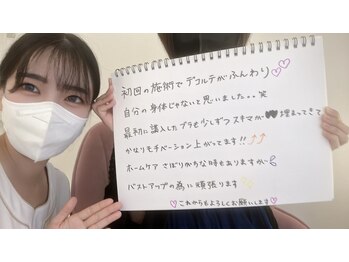 初回の施術でデコルテがふんわり♡♡
自分の身体じゃないと思いました。。笑
最初に購入したブラも少しずつスキマが♥♥埋まってきて
かなりモチベーション上がってます!!⤴⤴
ホームケア さぼりがちな時もありますが
バストアップの為に頑張ります
♡これからもよろしくお願いします♡